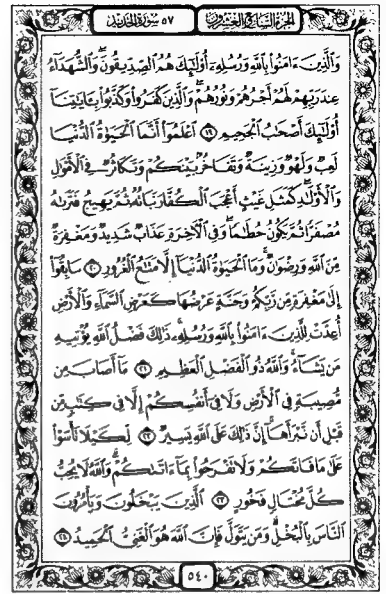 الجزء السابع والعشرون ٥٧ سورة الحديد
وَٱلَّذِينَ ءَامَنُوا۟ بِٱللَّهِ وَرُسُلِهِۦٓ أُو۟لَٰٓئِكَ هُمُ ٱلصِّدِّيقُونَ ۖ وَٱلشُّهَدَآءُ
عِندَ رَبِّهِمْ لَهُمْ أَجْرُهُمْ وَنُورُهُمْ ۖ وَٱلَّذِينَ كَفَرُوا۟ وَكَذَّبُوا۟ بِـَٔايَٰتِنَآ
أُو۟لَٰٓئِكَ أَصْحَٰبُ ٱلْجَحِيمِ ١٩ ٱعْلَمُوٓا۟ أَنَّمَا ٱلْحَيَوٰةُ ٱلدُّنْيَا
لَعِبٌ وَلَهْوٌ وَزِينَةٌ وَتَفَاخُرٌۢ بَيْنَكُمْ وَتَكَاثُرٌ فِى ٱلْأَمْوَٰلِ
وَٱلْأَوْلَٰدِ ۖ كَمَثَلِ غَيْثٍ أَعْجَبَ ٱلْكُفَّارَ نَبَاتُهُۥ ثُمَّ يَهِيجُ فَتَرَىٰهُ
مُصْفَرًّا ثُمَّ يَكُونُ حُطَٰمًا ۖ وَفِى ٱلْـَٔاخِرَةِ عَذَابٌ شَدِيدٌ وَمَغْفِرَةٌ
مِّنَ ٱللَّهِ وَرِضْوَٰنٌ ۚ وَمَا ٱلْحَيَوٰةُ ٱلدُّنْيَآ إِلَّا مَتَٰعُ ٱلْغُرُورِ ٢٠ سَابِقُوٓا۟
إِلَىٰ مَغْفِرَةٍ مِّن رَّبِّكُمْ وَجَنَّةٍ عَرْضُهَا كَعَرْضِ ٱلسَّمَآءِ وَٱلْأَرْضِ
أُعِدَّتْ لِلَّذِينَ ءَامَنُوا۟ بِٱللَّهِ وَرُسُلِهِۦ ۚ ذَٰلِكَ فَضْلُ ٱللَّهِ يُؤْتِيهِ
مَن يَشَآءُ ۚ وَٱللَّهُ ذُو ٱلْفَضْلِ ٱلْعَظِيمِ ٢١ مَآ أَصَابَ مِن
مُّصِيبَةٍ فِى ٱلْأَرْضِ وَلَا فِىٓ أَنفُسِكُمْ إِلَّا فِى كِتَٰبٍ مِّن
قَبْلِ أَن نَّبْرَأَهَآ ۚ إِنَّ ذَٰلِكَ عَلَى ٱللَّهِ يَسِيرٌ ٢٢ لِّكَيْلَا تَأْسَوْا۟
عَلَىٰ مَا فَاتَكُمْ وَلَا تَفْرَحُوا۟ بِمَآ ءَاتَىٰكُمْ ۗ وَٱللَّهُ لَا يُحِبُّ
كُلَّ مُخْتَالٍ فَخُورٍ ٢٣ ٱلَّذِينَ يَبْخَلُونَ وَيَأْمُرُونَ
ٱلنَّاسَ بِٱلْبُخْلِ ۗ وَمَن يَتَوَلَّ فَإِنَّ ٱللَّهَ هُوَ ٱلْغَنِىُّ ٱلْحَمِيدُ ٢٤
٥٤٠